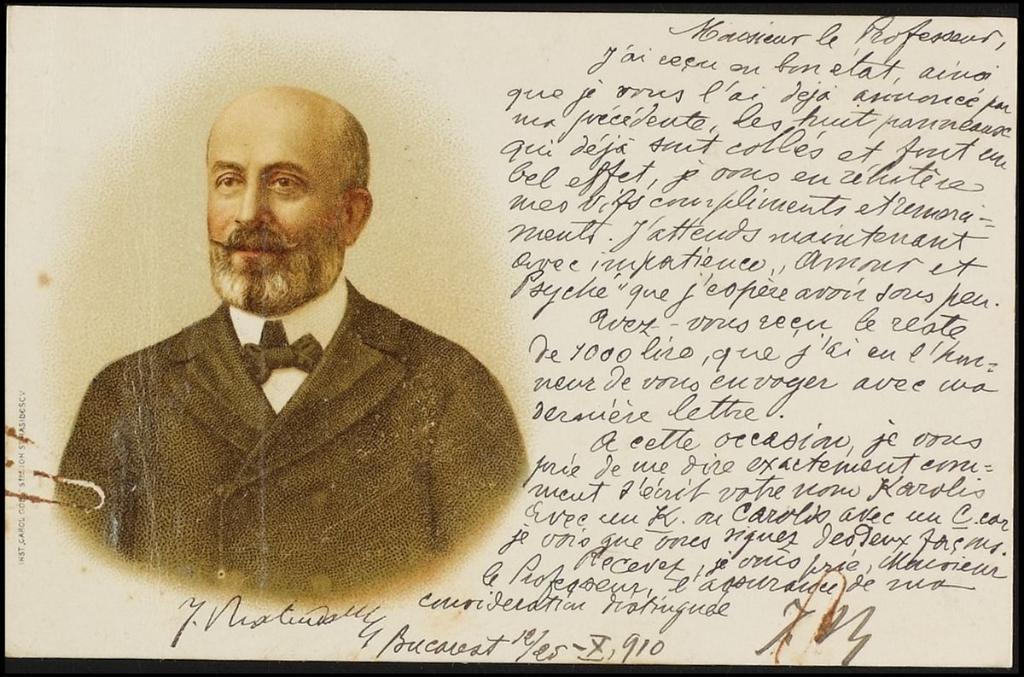 Monsieur le Professeur,
J'ai reçu en bon état, ainsi
que je vous l'ai déjà annoncé par
ma précédente, les huit panneaux
qui déjà sont collés et font un
bel effet, je vous en réïtère
mes vifs compliments et remerci-
ments. J'attends maintenant
avec impatience „Amour et
Psyché" que j'espère avoir sous peu.
Avez-vous reçu le reste
de 1000 lire, que j'ai eu l'hon-
neur de vous envoyer avec ma
dernière lettre.
A cette occasion, je vous
prie de me dire exactement com-
ment s'écrit votre nom Karolis
avec un K. ou Carolis avec un C. car
je vois que vous signez des deux façons.
Recevez, je vous prie, Monsieur
le Professeur, l'assurance de ma
considération distinguée
Bucarest 12/25 - X, 910
INST. CAROL GÖBL